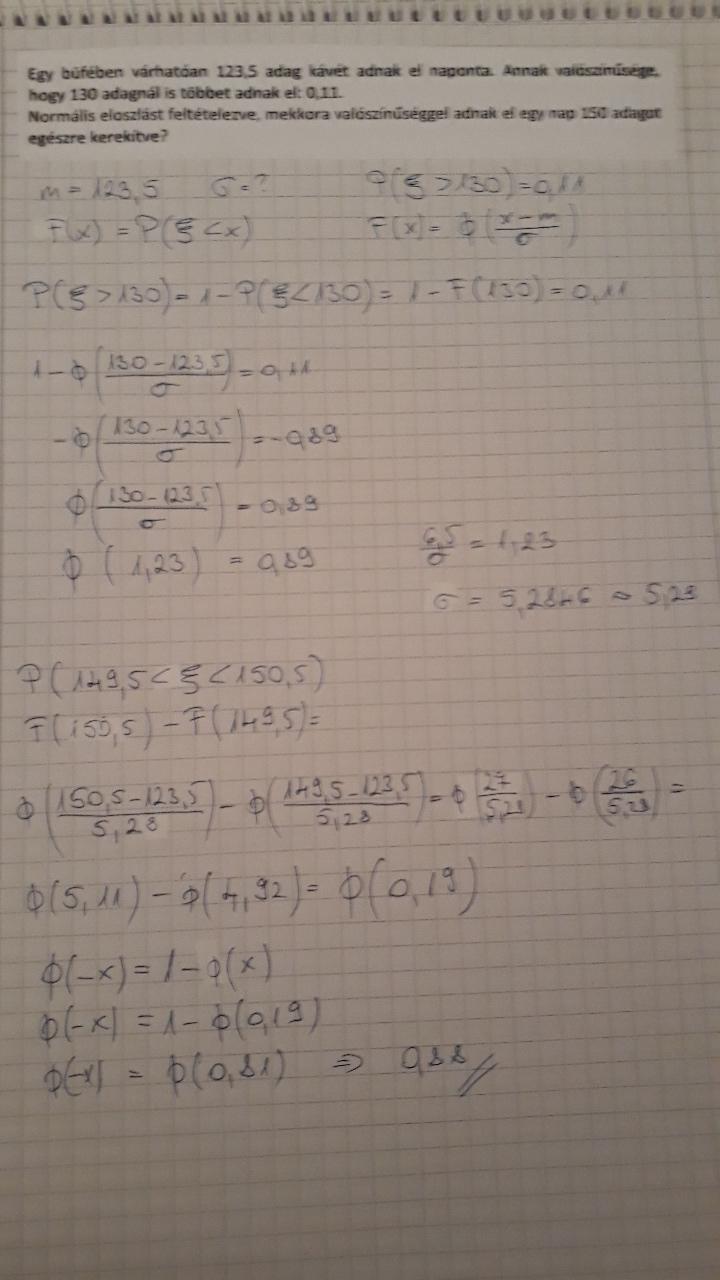 Egy büfében várhatóan 123,5 adag kávét adnak el naponta. Annak valószínűsége,
hogy 130 adagnál is többet adnak el: 0,11.
Normális eloszlást feltételezve, mekkora valószínűséggel adnak el egy nap 150 adagot
egészre kerekítve?
m = 123,5 σ = ? P(ξ > 130) = 0,11
F(x) = P(ξ < x) F(x) = ϕ(\frac{x-m}{σ})
P(ξ > 130) = 1 - P(ξ < 130) = 1 - F(130) = 0,11
1 - ϕ(\frac{130-123,5}{σ}) = 0,11
-ϕ(\frac{130-123,5}{σ}) = -0,89
ϕ(\frac{130-123,5}{σ}) = 0,89
ϕ(1,23) = 0,89 \frac{6,5}{σ} = 1,23
σ = 5,2846 ≈ 5,28
P(149,5 < ξ < 150,5)
F(150,5) - F(149,5) =
ϕ(\frac{150,5-123,5}{5,28}) - ϕ(\frac{149,5-123,5}{5,28}) = ϕ(\frac{27}{5,28}) - ϕ(\frac{26}{5,28}) =
ϕ(5,11) - ϕ(4,92) = ϕ(0,19)
ϕ(-x) = 1 - ϕ(x)
ϕ(-x) = 1 - ϕ(0,19)
ϕ(-x) = ϕ(0,81) ⇒ 0,88